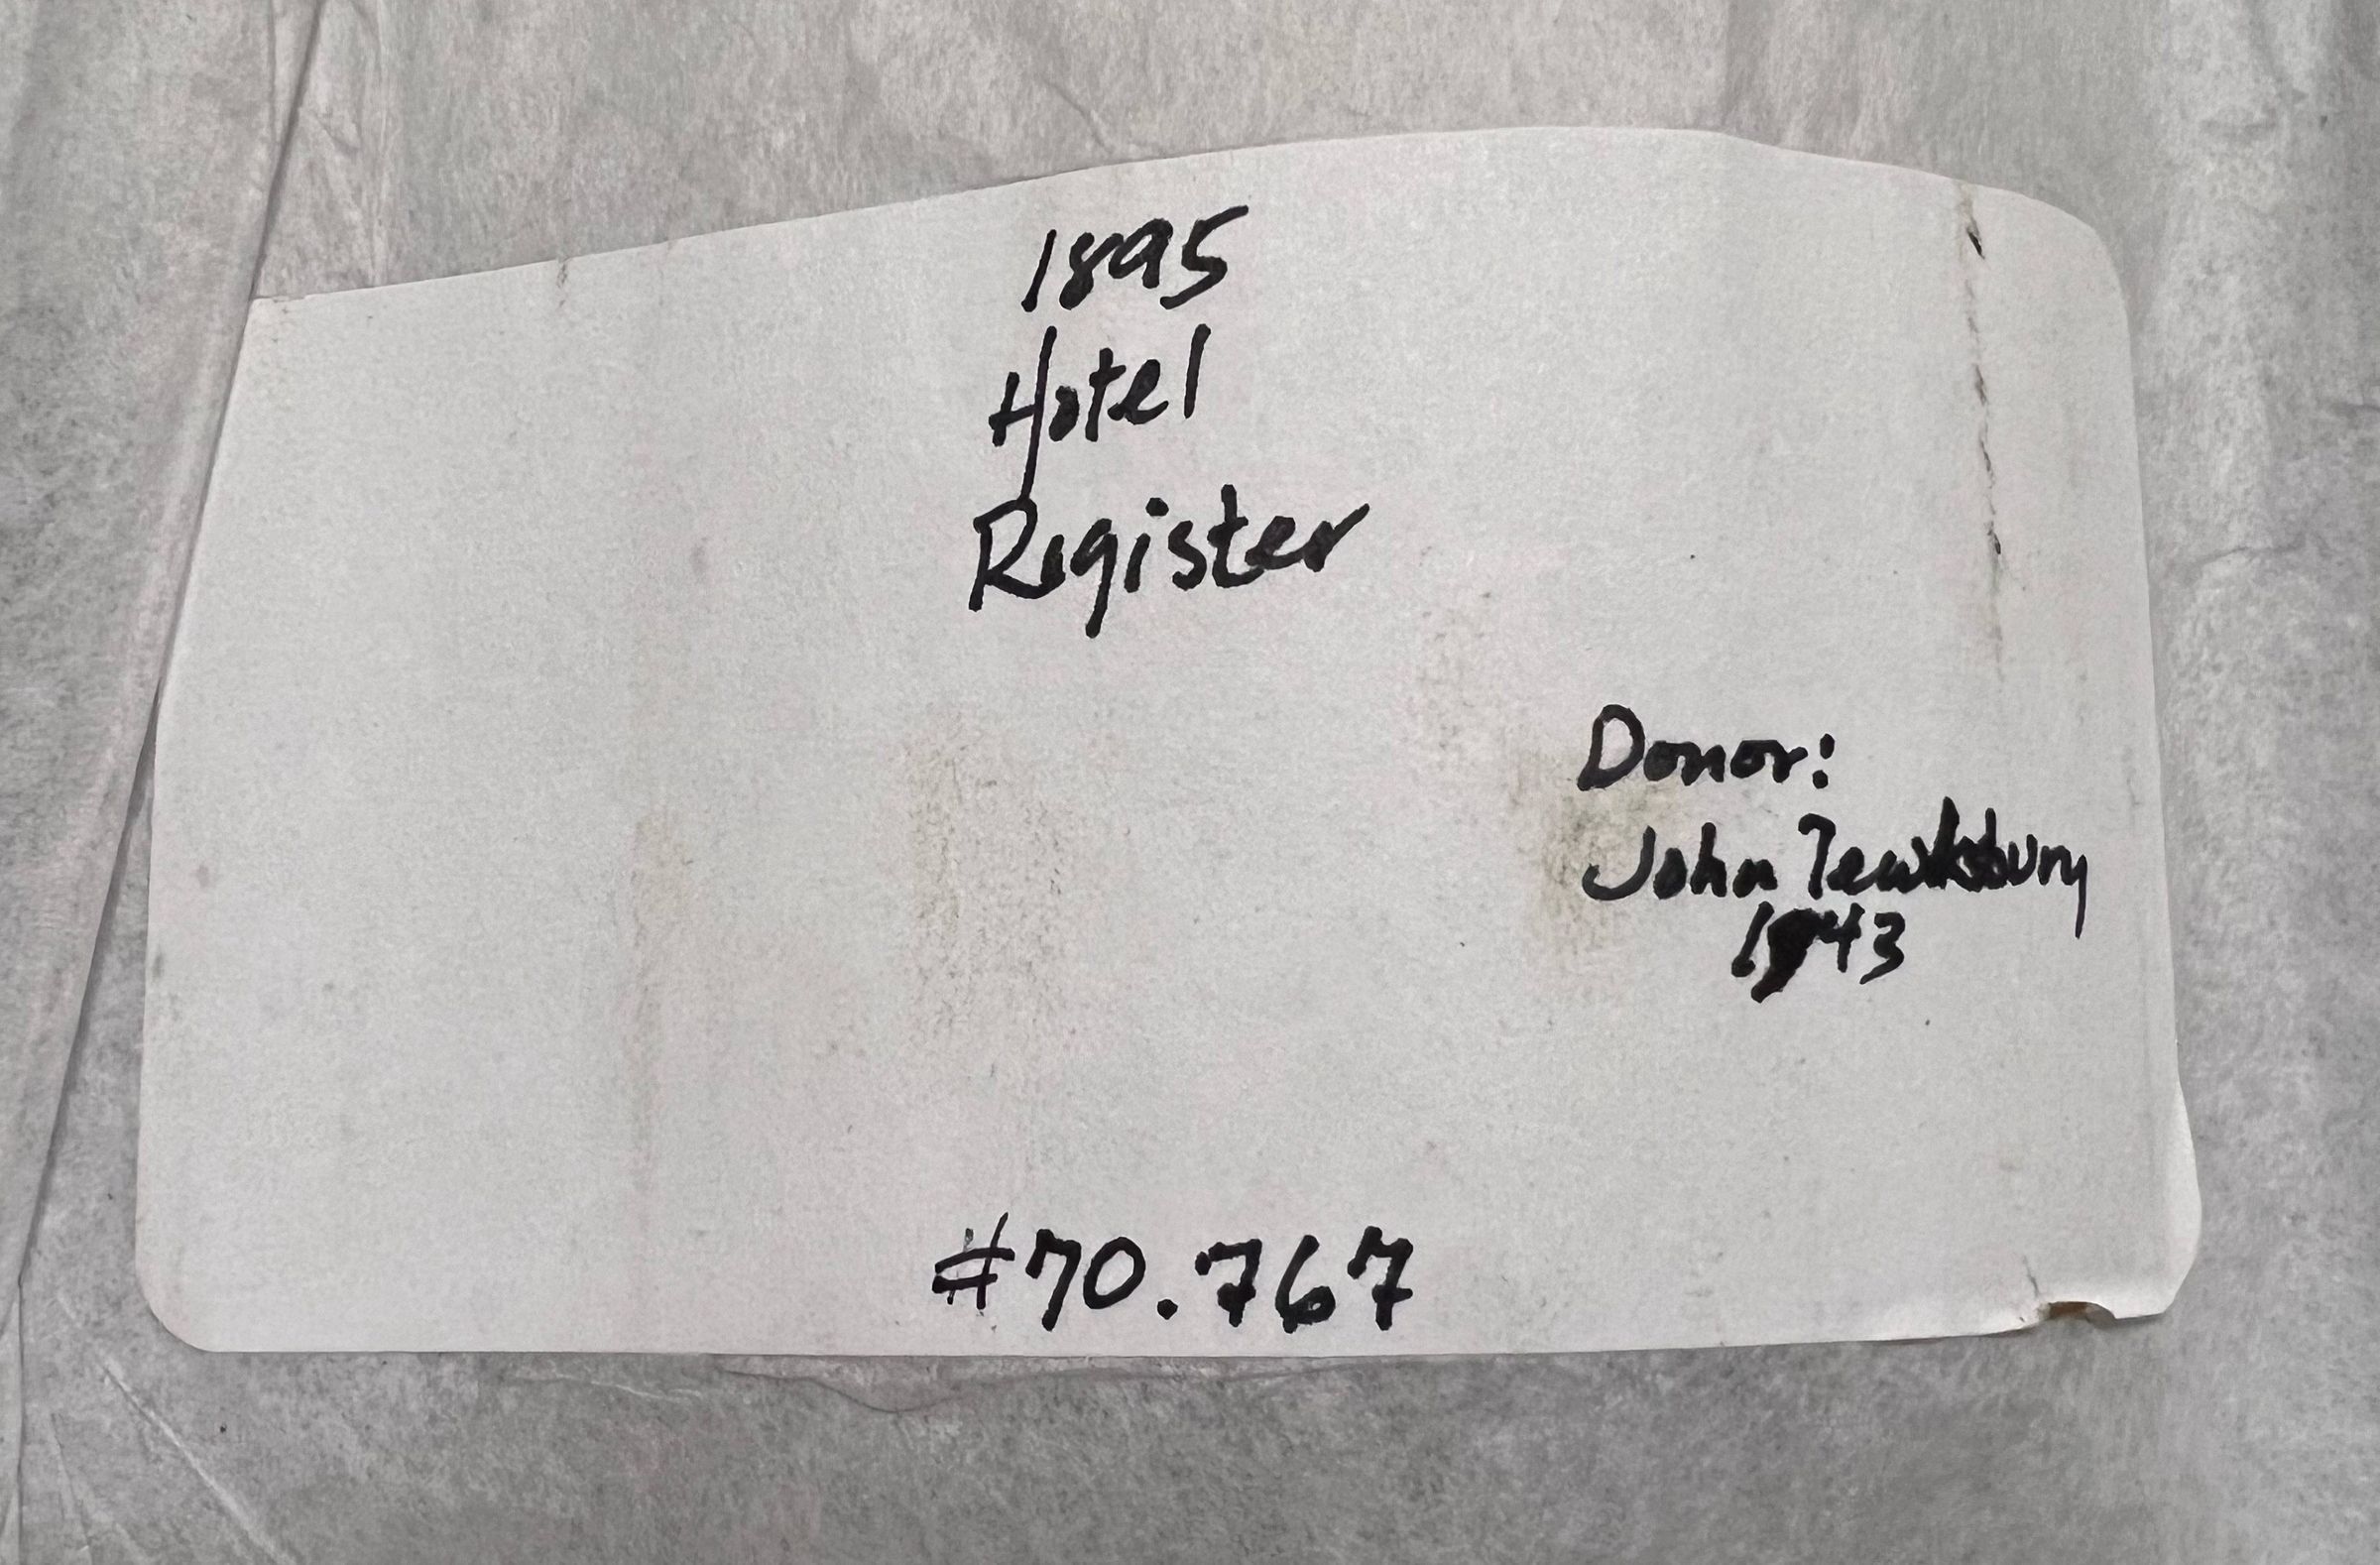 1895
Hotel
Register
Donor:
John Tewksbury
1943
#70.767